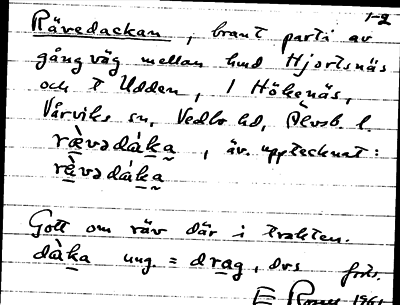 1-2
Rävedackan, brant parti av
gångväg mellan hmd Hjortsnäs
och t Udden, i Hökenäs,
Vårviks sn, Vedbo hd, Älvsb. l.
rävədáka, äv. upptecknat:
rèvədáka
Gott om räv där i trakten.
dàka ung. = drag, dvs
1961